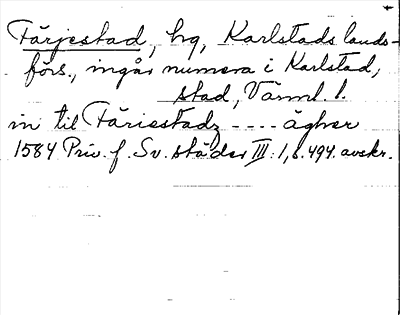 Färjestad, hg, Karlstads lands-
förs., ingår numera i Karlstad,
stad, Värml. l.
in til Färiestadz ---- ägher
1584 Priv. f. Sv. städer III:1, s. 494. avskr.